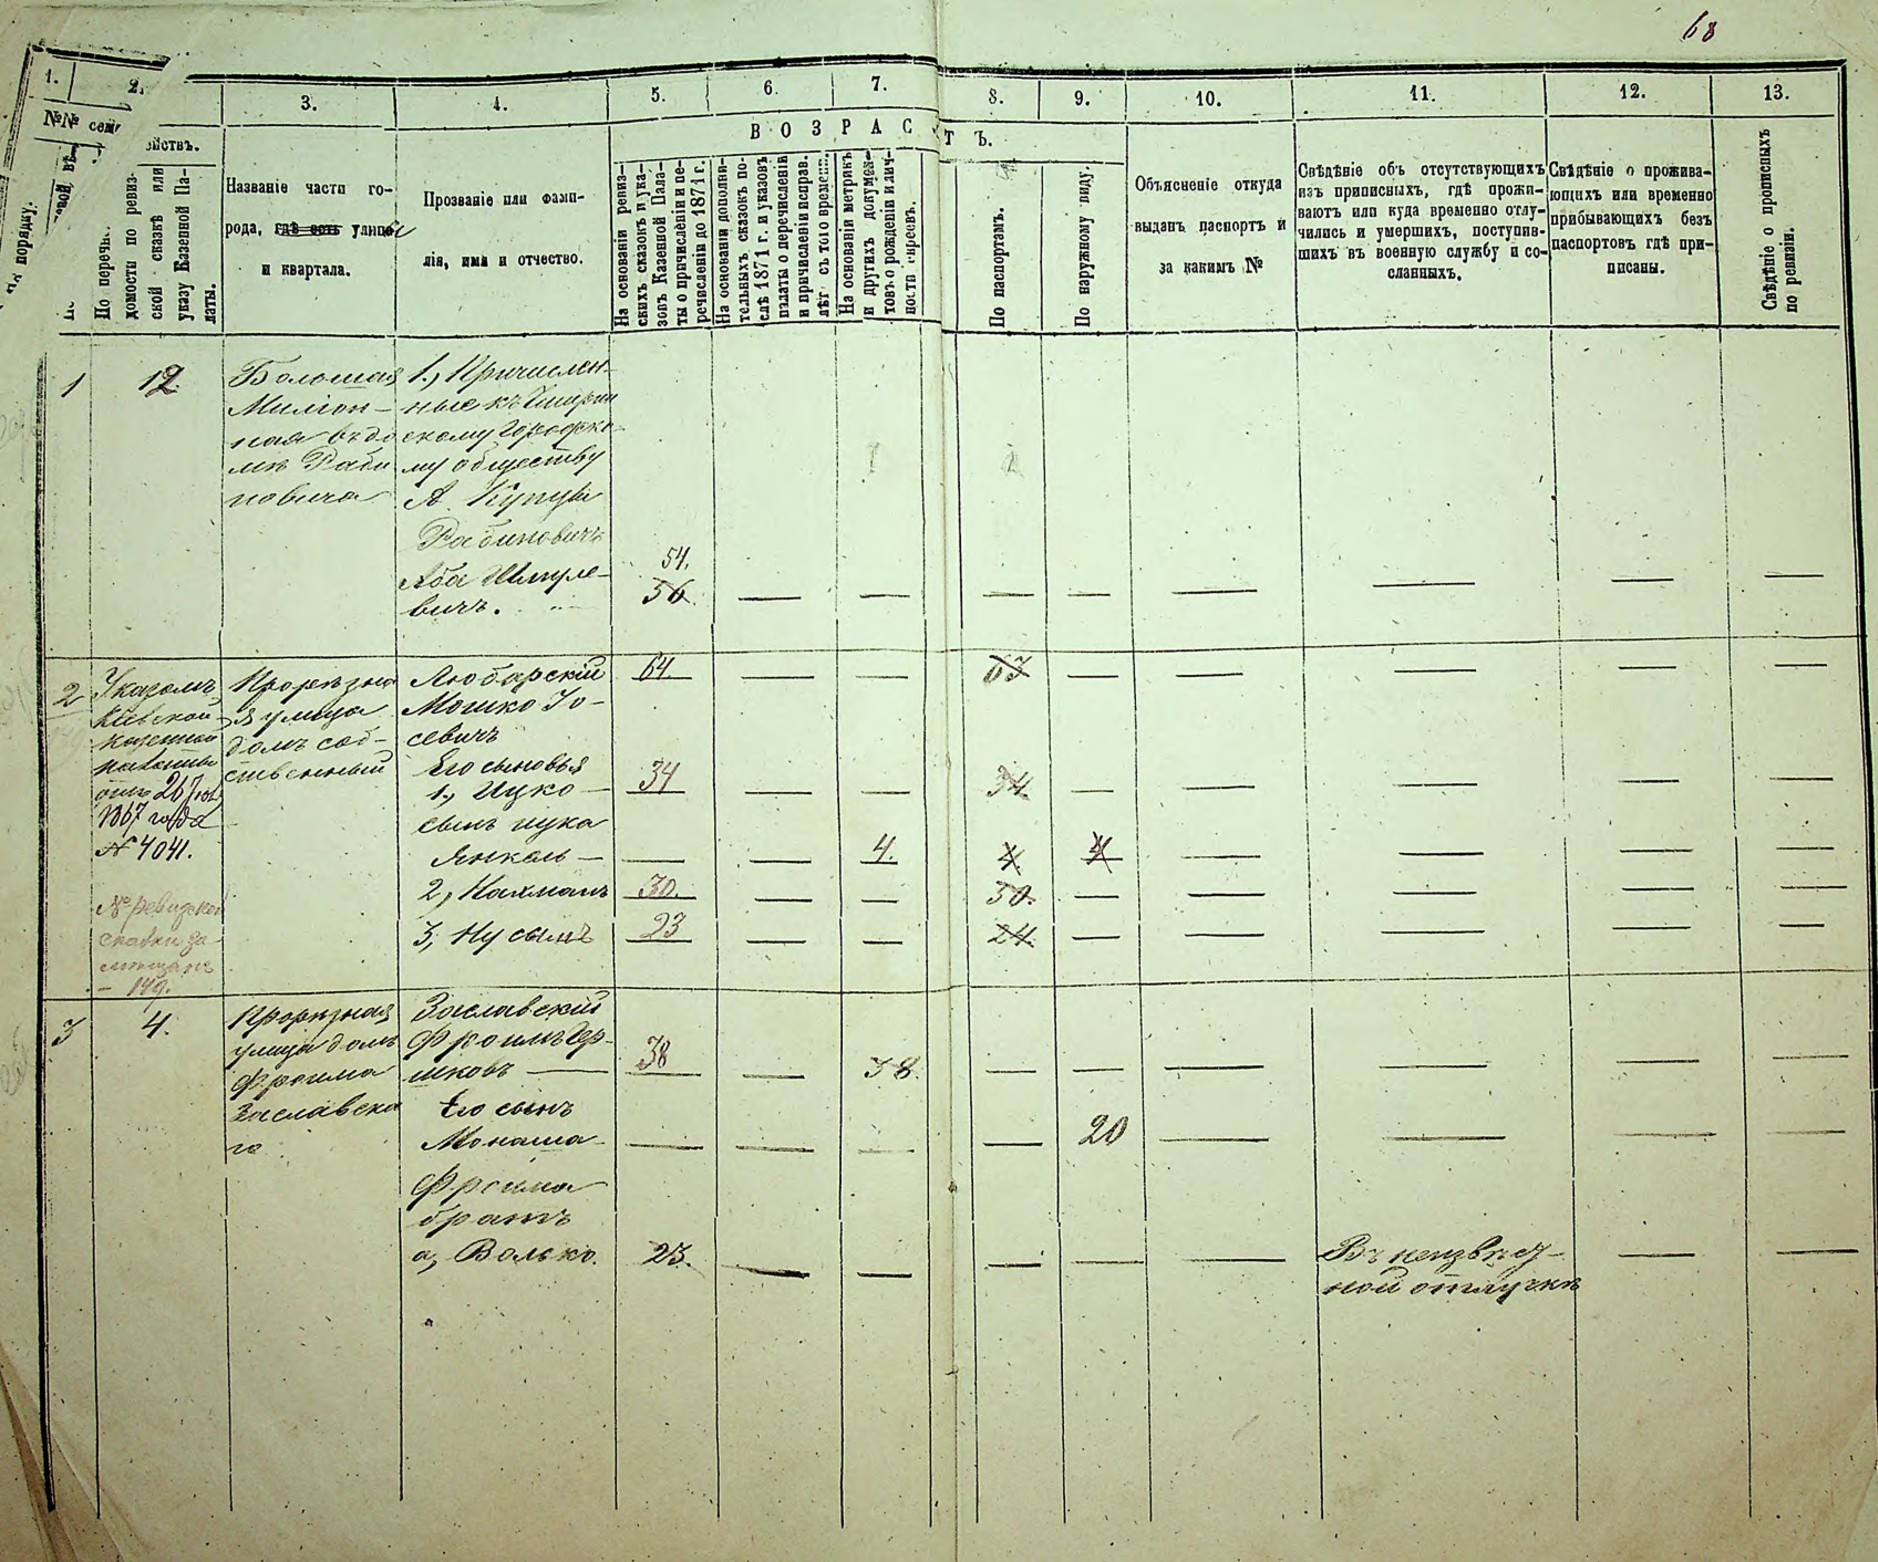 68
1. 2. 3. 4. 5. 6. 7. 8. 9. 10. 11. 12. 13.
№№ сем
ействъ.
порядку.
По перечн.
домости по ревиз-
ской сказкѣ или
указу Казенной Па-
латы.
Названіе части го-
рода, гдѣ есть улицы
и квартала.
Прозваніе или фами-
лія, имя и отчество.
ВОЗРАСТЪ.
На основаніи ревиз-
скихъ сказокъ и ука-
зовъ Казенной Пала-
ты о причисленіи и пе-
речисленіи до 1871 г.
На основаніи дополни-
тельныхъ сказокъ по-
слѣ 1871 г. и указовъ
палаты о перечисленіи
и причисленіи исправ.
лѣт съ того времени.
На основаніи метрикъ
и другихъ докумен-
товъ о рожденіи и лич-
ности евреевъ.
По паспортамъ.
По наружному виду.
Объясненіе откуда
выданъ паспортъ и
за какимъ №
Свѣдѣніе объ отсутствующихъ
изъ приписныхъ, гдѣ прожи-
ваютъ или куда временно отлу-
чились и умершихъ, поступив-
шихъ въ военную службу и со-
сланныхъ.
Свѣдѣніе о прожива-
ющихъ или временно
прибывающихъ безъ
паспортовъ гдѣ при-
писаны.
Свѣдѣніе о прописныхъ
по ревизіи.
1
12.
Большая
Миліон-
ная въ до
мѣ Раби
новича
1., Причислен-
ные къ
скому Городско-
му обществу
А. Купцы
Рабиновичъ
Аба Шмуле-
вичъ.
54.
56.
2
Указомъ
Кіевской
казенной
палаты
отъ 26
1867 года
№ 4041.
№ ревизской
сказки за
мѣщане
- 149.
Прорѣзна
я улица
домъ соб-
ственный
Любарскій
Мошко Іо-
севичъ
64.
63
Его сыновья
1., Ицко —
34
34.
сынъ ицка
Янкель —
4.
4.
4
2, Нахманъ
30.
30.
3, Нусынъ
23
24.
3
4.
Прорѣзная
улица домъ
Фроима
Заславска
го
Заславскій
Фроимъ Гер-
шковъ —
38
38.
Его сынъ
Монаша
20
Фроима
братъ
а, Волько.
23.
Въ неизвѣст-
ной отлучкѣ